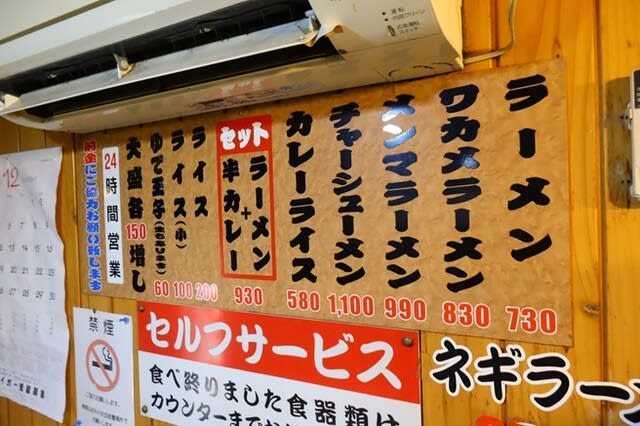 ラーメン 730
ワカメラーメン 830
メンマラーメン 990
チャーシューメン 1,100
カレーライス 580
セット
ラーメン
+
半カレー
930
ライス 200
ライス(小) 100
ゆで玉子 60
大盛各150増し
24時間営業
前金にご協力お願い致します
12
禁煙
セルフサービス
食べ終りました食器類は
カウンターまで
ネギラー
運転
内部クリーン